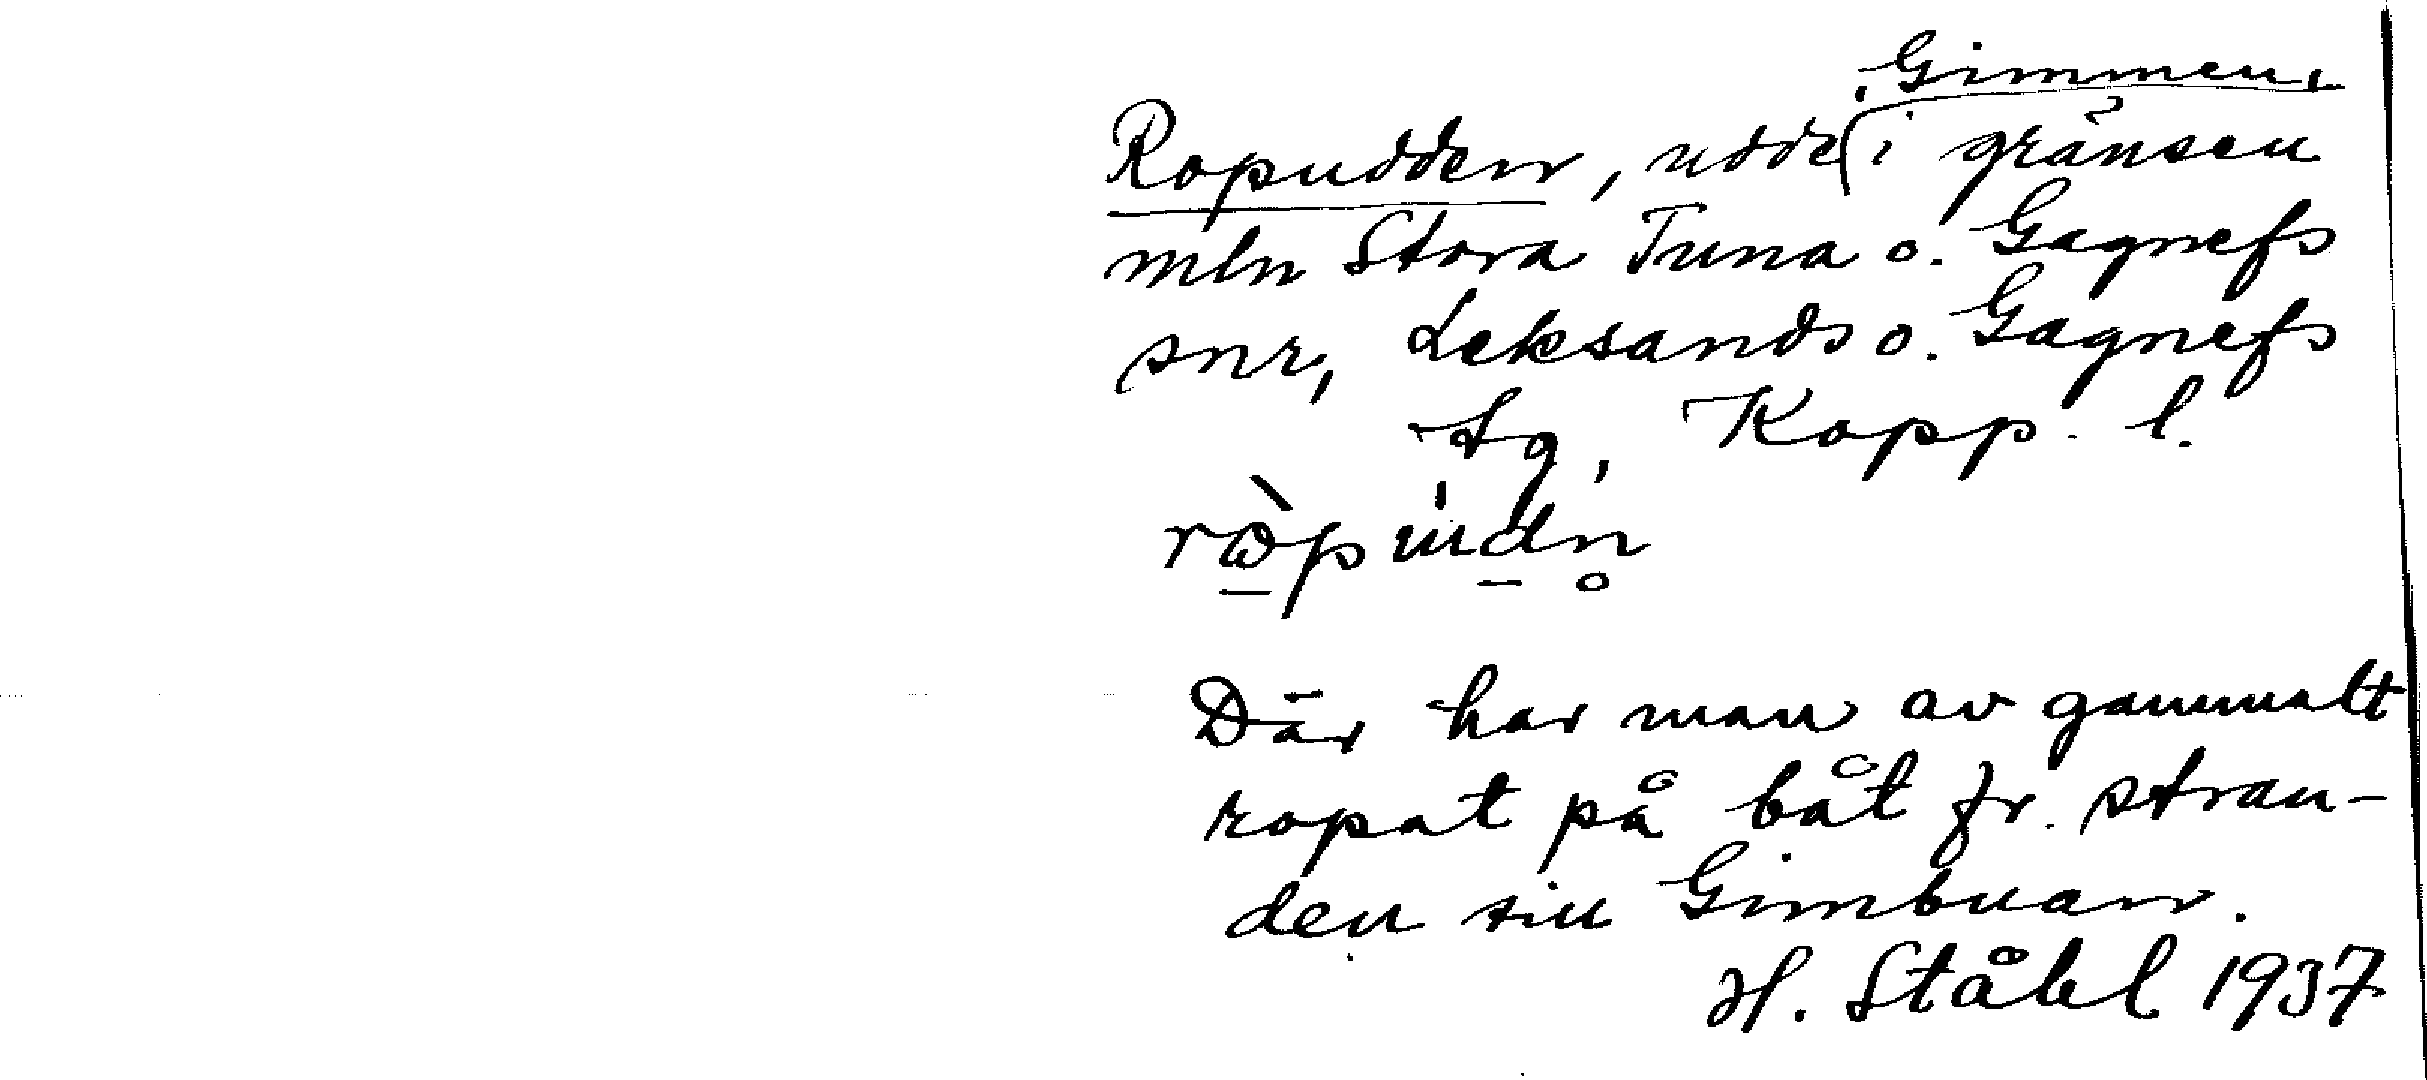 , Gimmen,
Ropudden, udde i gränsen
mln Stora Tuna o. Gagnefs
snr, Leksands o. Gagnefs
tg, Kopp. l.
Där har man av gammalt
ropat på båt fr. stran-
den till Gimbuan.
H. Ståhl 1937